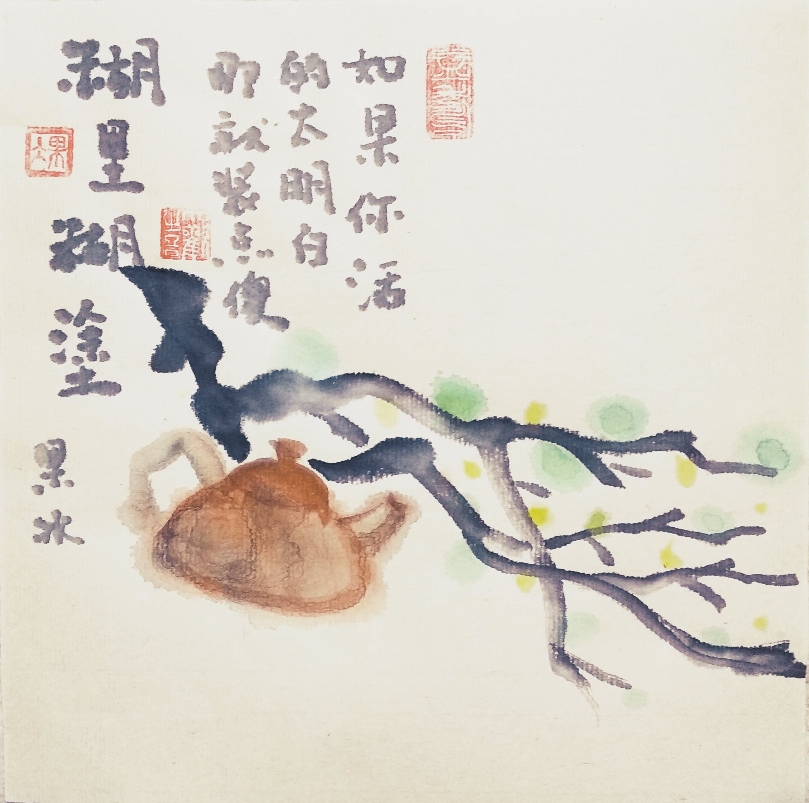 如果你活
的太明白
那就装点傻
糊里糊塗
果冰